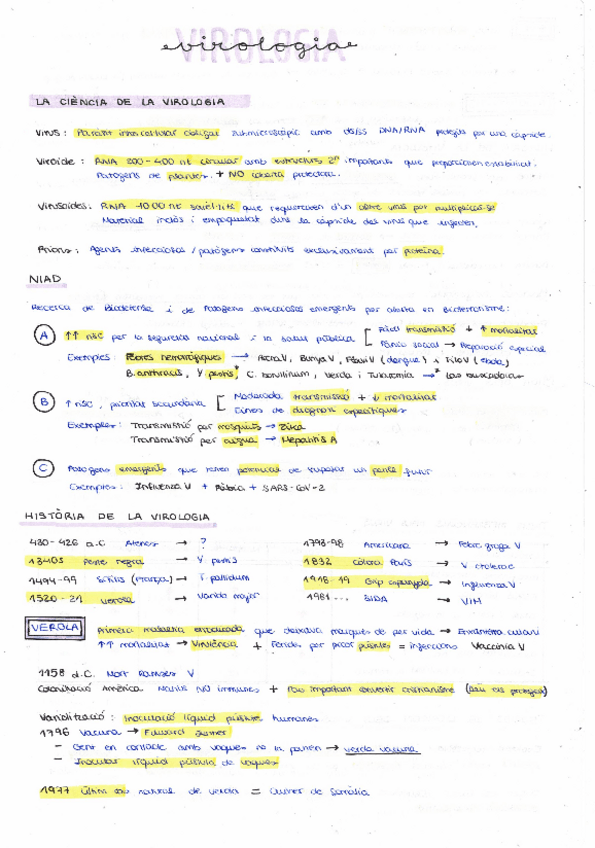 virologia
LA CIÈNCIA DE LA VIROLOGIA
Virus: Paràsit intracel·lular obligat submicroscòpic amb ds/ss DNA/RNA protegits per una càpside.
Viroide: RNA 200-400 nt circular amb estructures 2ª importants que proporcionen estabilitat.
Patògens de plantes. + NO coberta protectora.
Virusoides: RNA satèl·lits que requereixen d'un altre virus per multiplicar-se
Material inclòs i empaquetat dins la càpside del virus que
Prions: Agents infecciosos / patògens constituïts exclusivament per proteïna.
NIAD
Recerca de Biodefensa i de Patògens infecciosos emergents per alerta en Bioterrorisme:
A ↑↑ risc per la seguretat nacional i la salut pública [ Fàcil transmissió + ↑ mortalitat
Pànic social → Preparació especial
Exemples: Febres hemorràgiques → ArenaV, BunyaV, FlaviV (dengue) i FiloV (Ebola)
B. anthracis, Y. pestis*, C. botulinum, verola i Tularemia
B ↑ risc, prioritat secundària [ Moderada transmissió + ↓ mortalitat
Eines de diagnosi específiques
Exemples: Transmissió per mosquits → Zika
Transmissió per aigua → Hepatitis A
C Patògens emergents que tenen potencial de suposar un perill futur
Exemples: Influenza V + Ràbia + SARS-CoV-2
HISTÒRIA DE LA VIROLOGIA
430-426 a.C Atenes → ?
Peste negra → Y. pestis
1494-99 Sífilis (França) → T. pallidum
1520-21 Verola → Variola major
1793-98 Americana → Febre groga V
1832 Còlera París → V. cholerae
1918-19 Grip espanyola → Influenza V
1981... SIDA → VIH
VEROLA
Primera malaltia eradicada que deixava marques de per vida →
↑↑ mortalitat → Virulència + Ferides per picor pústules = infeccions Vaccinia V
1158 a.C. Mort Ramses V
Colonització Amèrica Natius NO immunes + Rol important convertir cristianisme
Variolització: Inoculació líquid pústules humanes
1796 Vacuna → Edward Jenner
- Gent en contacte amb vaques no la patien → verola vacuna
- Inocular líquid pústula de vaques
1977 Últim cas natural de verola = cuiner de Somàlia